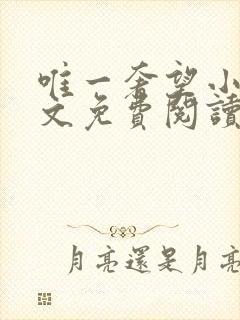 唯一奢望小
文免費閱讀
月亮還是月亮